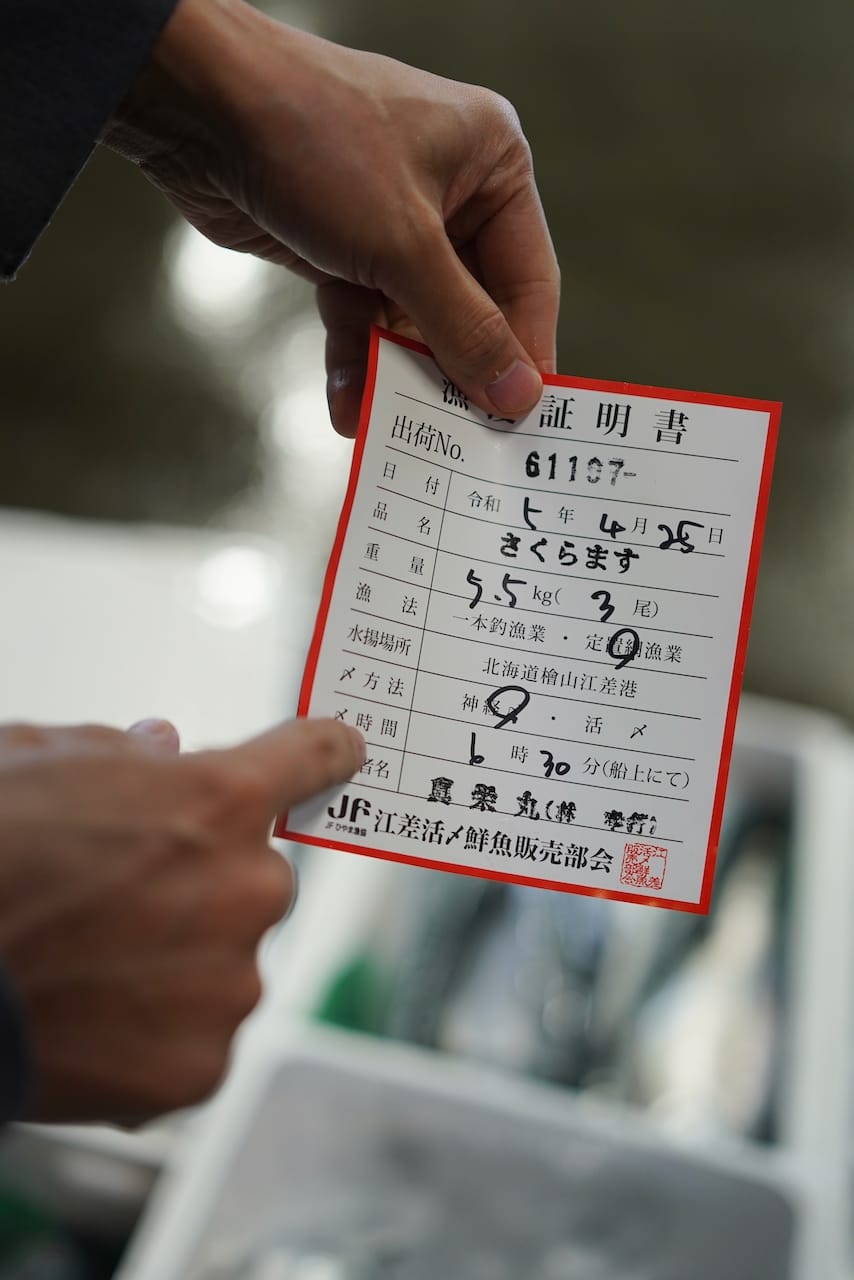 漁 証明書
出荷No. 61107-
日付 令和5年4月25日
品名 さくらます
重量 5.5kg(3尾)
漁法 一本釣漁業・定置網漁業
水揚場所 北海道檜山江差港
〆方法 神経〆・活〆
〆時間 6時30分(船上にて)
者名 栄丸(林
JF JFひやま漁協 江差活〆鮮魚販売部会